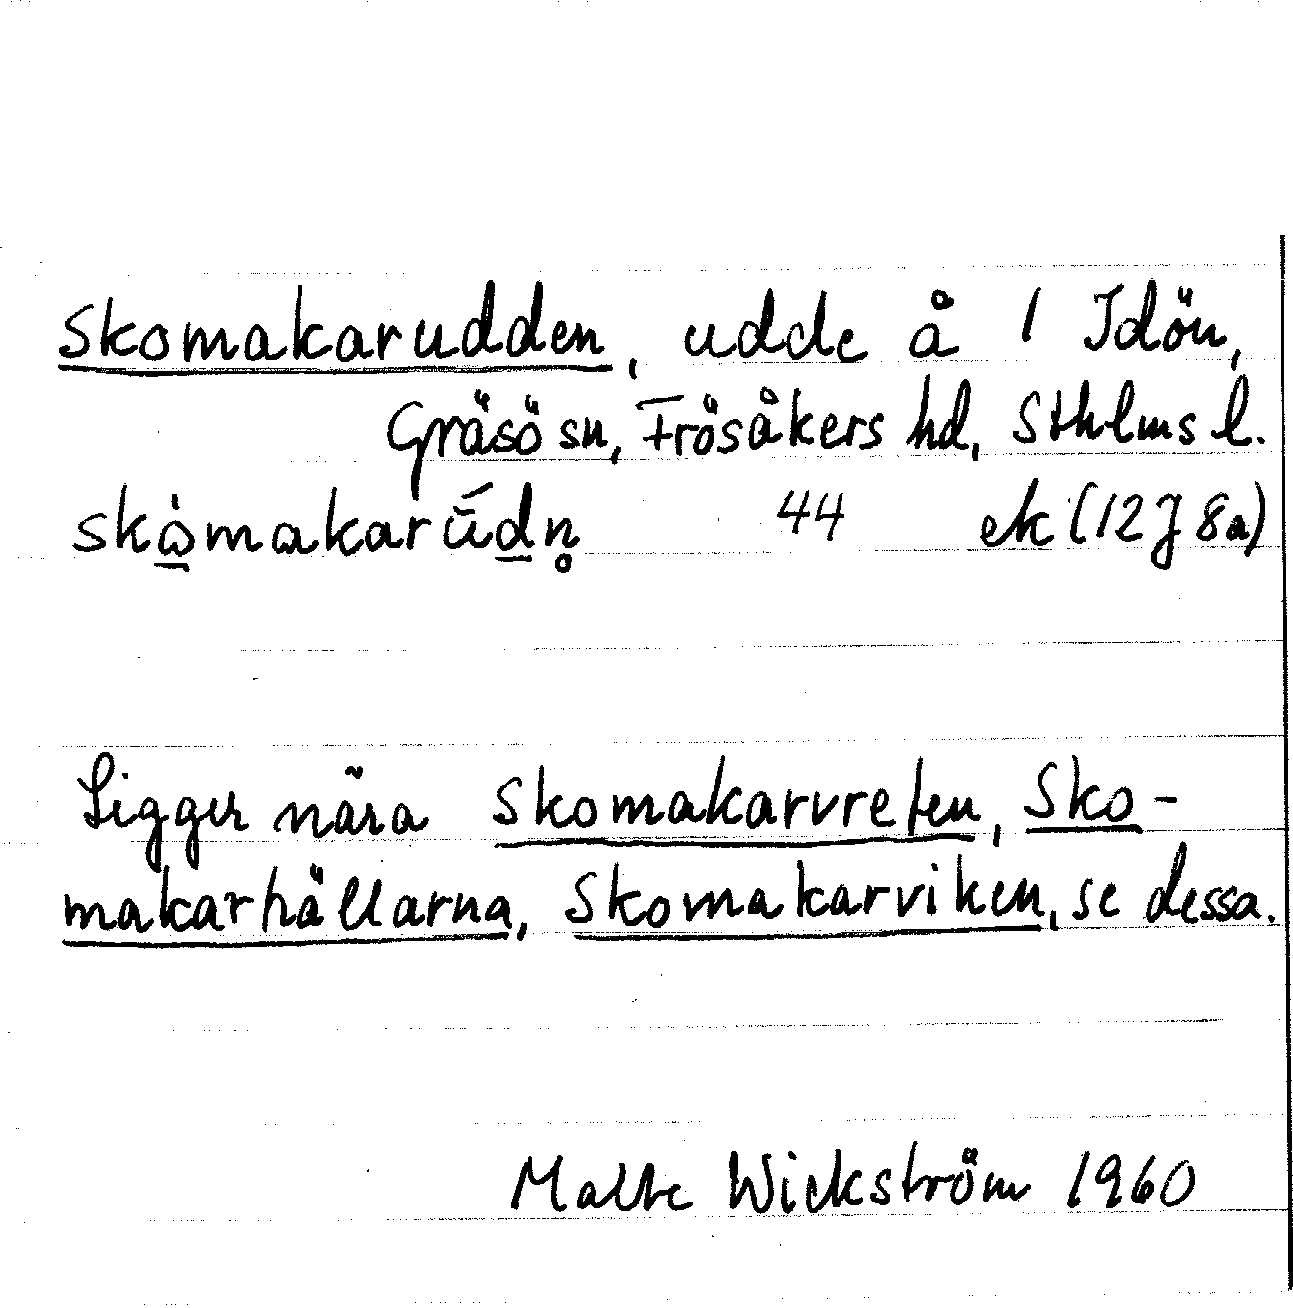 Skomakarudden, udde å 1 Idön,
Gräsö sn, Frösåkers hd, Sthlms l.
skὼ̲makarū́d̲n̥ 44 ek (12J 8a)
Ligger nära Skomakarvreten, Sko-
makarhällarna, Skomakarviken, se dessa.
Malte Wickström 1960